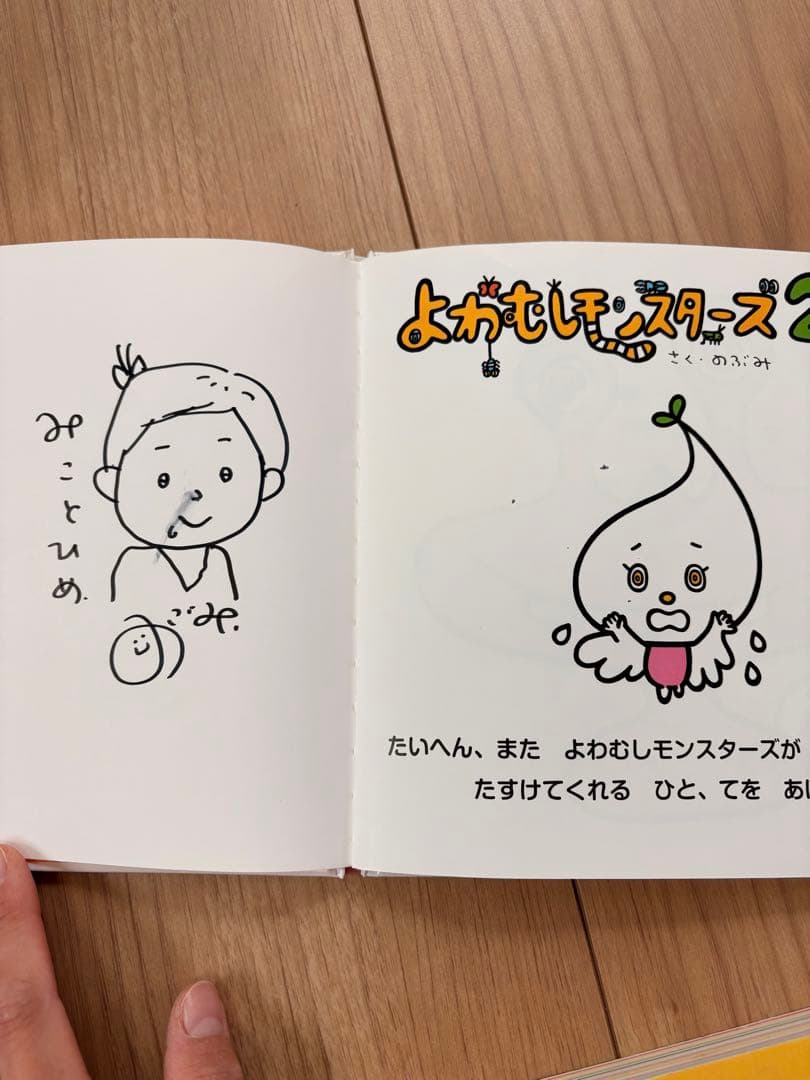 みことひめ
よわむしモンスターズ2
さく・のぶみ
たいへん、また よわむしモンスターズが
たすけてくれる ひと、てを あ